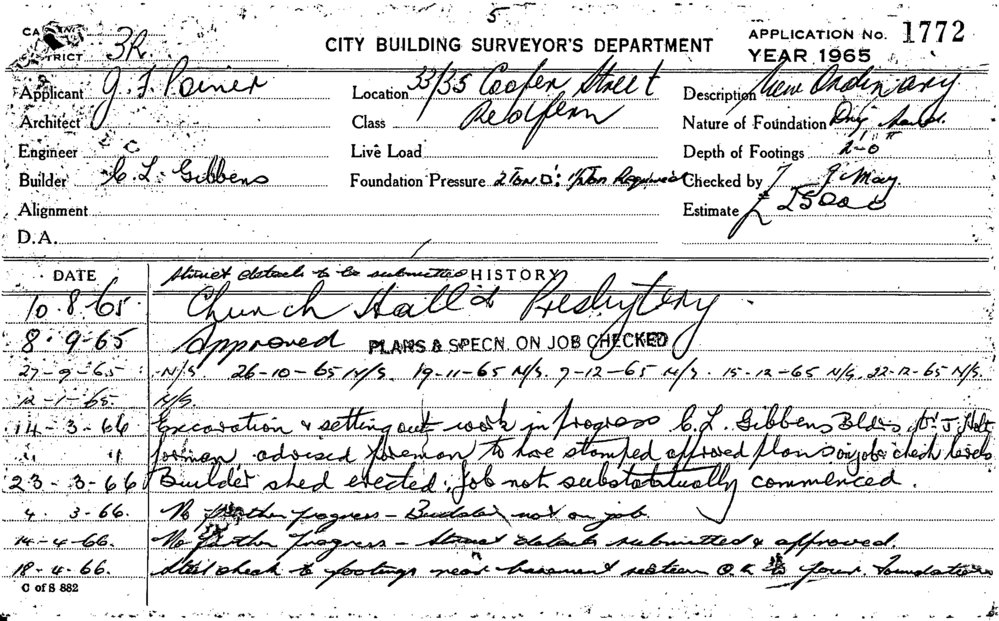 5
CITY BUILDING SURVEYOR'S DEPARTMENT
APPLICATION No. 1772
YEAR 1965
3R
Applicant J. F. Location 33/35 Cooper Street Description New Ordinary
Architect Class Redfern Nature of Foundation
Engineer Live Load Depth of Footings 2'-0"
Builder C. L. Gibbens Foundation Pressure 2 Ton Required Checked by J May.
Alignment Estimate £ 25000
D.A.
DATE Struct details to be submitted HISTORY
10.8.65 Church Hall & Presbytery.
8.9-65 Approved PLANS & SPECN. ON JOB CHECKED
27-9-65 N/S. 26-10-65 N/S. 19-11-65 N/S. 7-12-65 N/S. 15-12-65 N/S. 22-12-65 N/S.
12-1-65. N/S.
14-3-66 Excavation & setting out work in progress C. L. Gibbens Bldrs J. Holt
" " forman advised foreman to have stamped approved plans on job & check levels
23-3-66 Builder's shed erected; job not substatutually commenced.
4. 3-66. No further progress - Builder not on job.
14-4-66. No further progress - Struct details submitted & approved.
18-4-66. check to footings near basement section O.K. to pour. Foundations
C of S 882